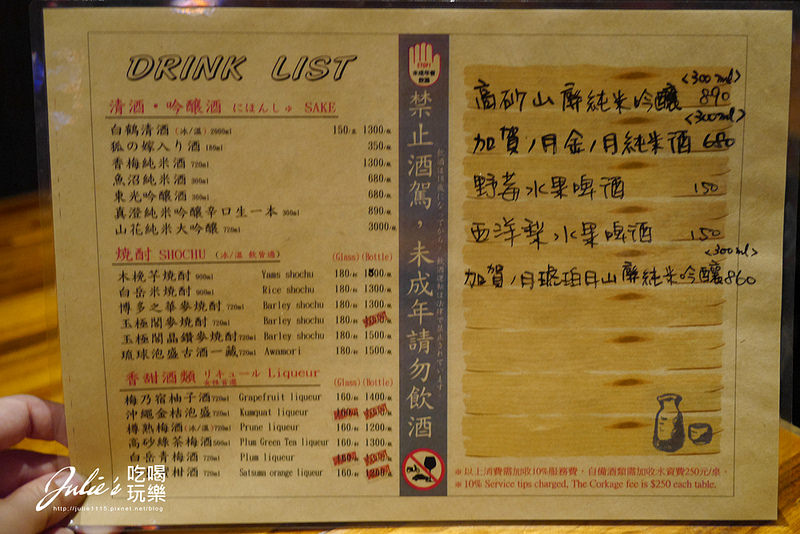 DRINK LIST
清酒・吟釀酒 にほんしゅ SAKE
白鶴清酒 (冰/溫) 2000ml 150/壺 1300/瓶
狐の嫁入り酒 180ml 350/瓶
香梅純米酒 720ml 1300/瓶
魚沼純米酒 300ml 680/瓶
東光吟釀酒 300ml 680/瓶
真澄純米吟釀辛口生一本 300ml 890/瓶
山花純米大吟釀 720ml 3000/瓶
燒酎 SHOCHU (冰/溫 飲皆適) (Glass) (Bottle)
木挽芋燒酎 900ml Yams shochu 180/杯 1300/瓶
白岳米燒酎 900ml Rice shochu 180/杯 1300/瓶
博多之華麥燒酎 720ml Barley shochu 180/杯 1300/瓶
玉極閣麥燒酎 720ml Barley shochu 180/杯
玉極閣晶鑽麥燒酎 720ml Barley shochu 180/杯 1500/瓶
琉球泡盛古酒一藏 720ml Awamori 180/杯 1500/瓶
香甜酒類 リキュール Liqueur
女性首選 (Glass) (Bottle)
梅乃宿柚子酒 720ml Grapefruit liqueur 160/杯 1400/瓶
沖繩金桔泡盛 720ml Kumquat liqueur
樽熟梅酒 (冰/溫) 720ml Prune liqueur 160/杯 1200/瓶
高砂綠茶梅酒 500ml Plum Green Tea liqueur 160/杯 1300/瓶
白岳青梅酒 720ml Plum liqueur
柑酒 720ml Satsuma orange liqueur 160/杯 1200/瓶
STOP!
未成年者
飲酒
禁止酒駕，未成年請勿飲酒
<300ml>
高砂山廃純米吟釀 890
<300ml>
加賀ノ月金ノ月純米酒 680
野莓水果啤酒 150
西洋梨水果啤酒 150
<300ml>
加賀ノ月琥珀月山廃純米吟釀 860
※以上消費需加收10%服務費，自備酒類需加收水資費250元/桌。
※10% Service tips charged, The Corkage fee is $250 each table.
Julie's 吃喝
玩樂
http://julie1115.pixnet.net/blog